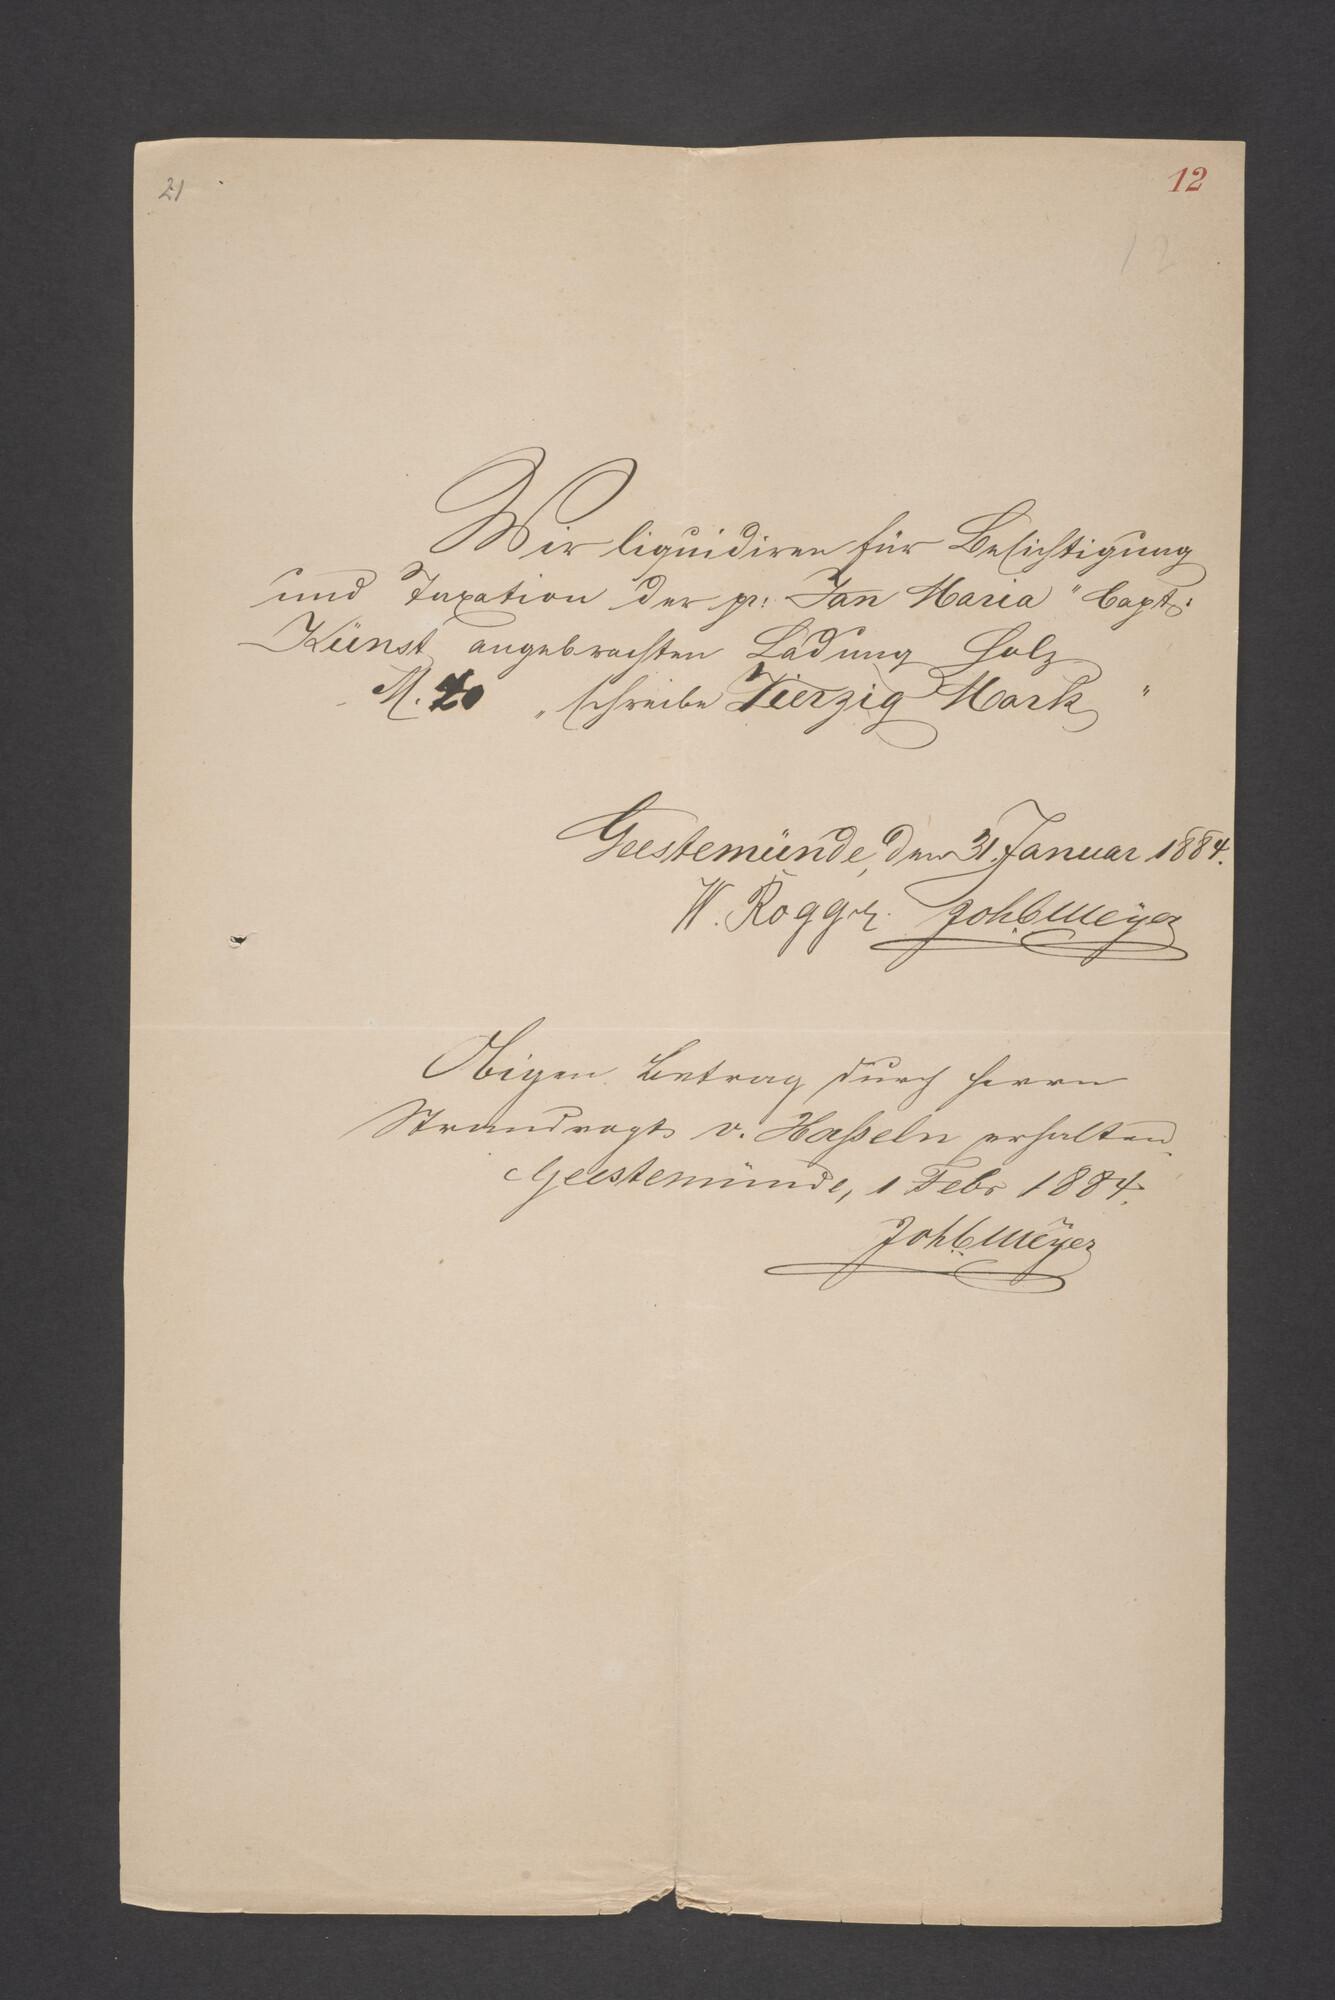 21
12
12
Wir liquidiren für Besichtigung
und Taxation der pr: Jan Maria" Capt:
Künst angebrachten Ladung Holz
M. 40 „schreibe Vierzig Mark"
Geestemünde, den 31. Januar 1884.
W. Rogge. Joh. C Meÿer
Obigen Betrag durch Herrn
Strandvogt v. Haßeln erhalten.
Geestemünde, 1 Febr 1884.
Joh. C Meÿer